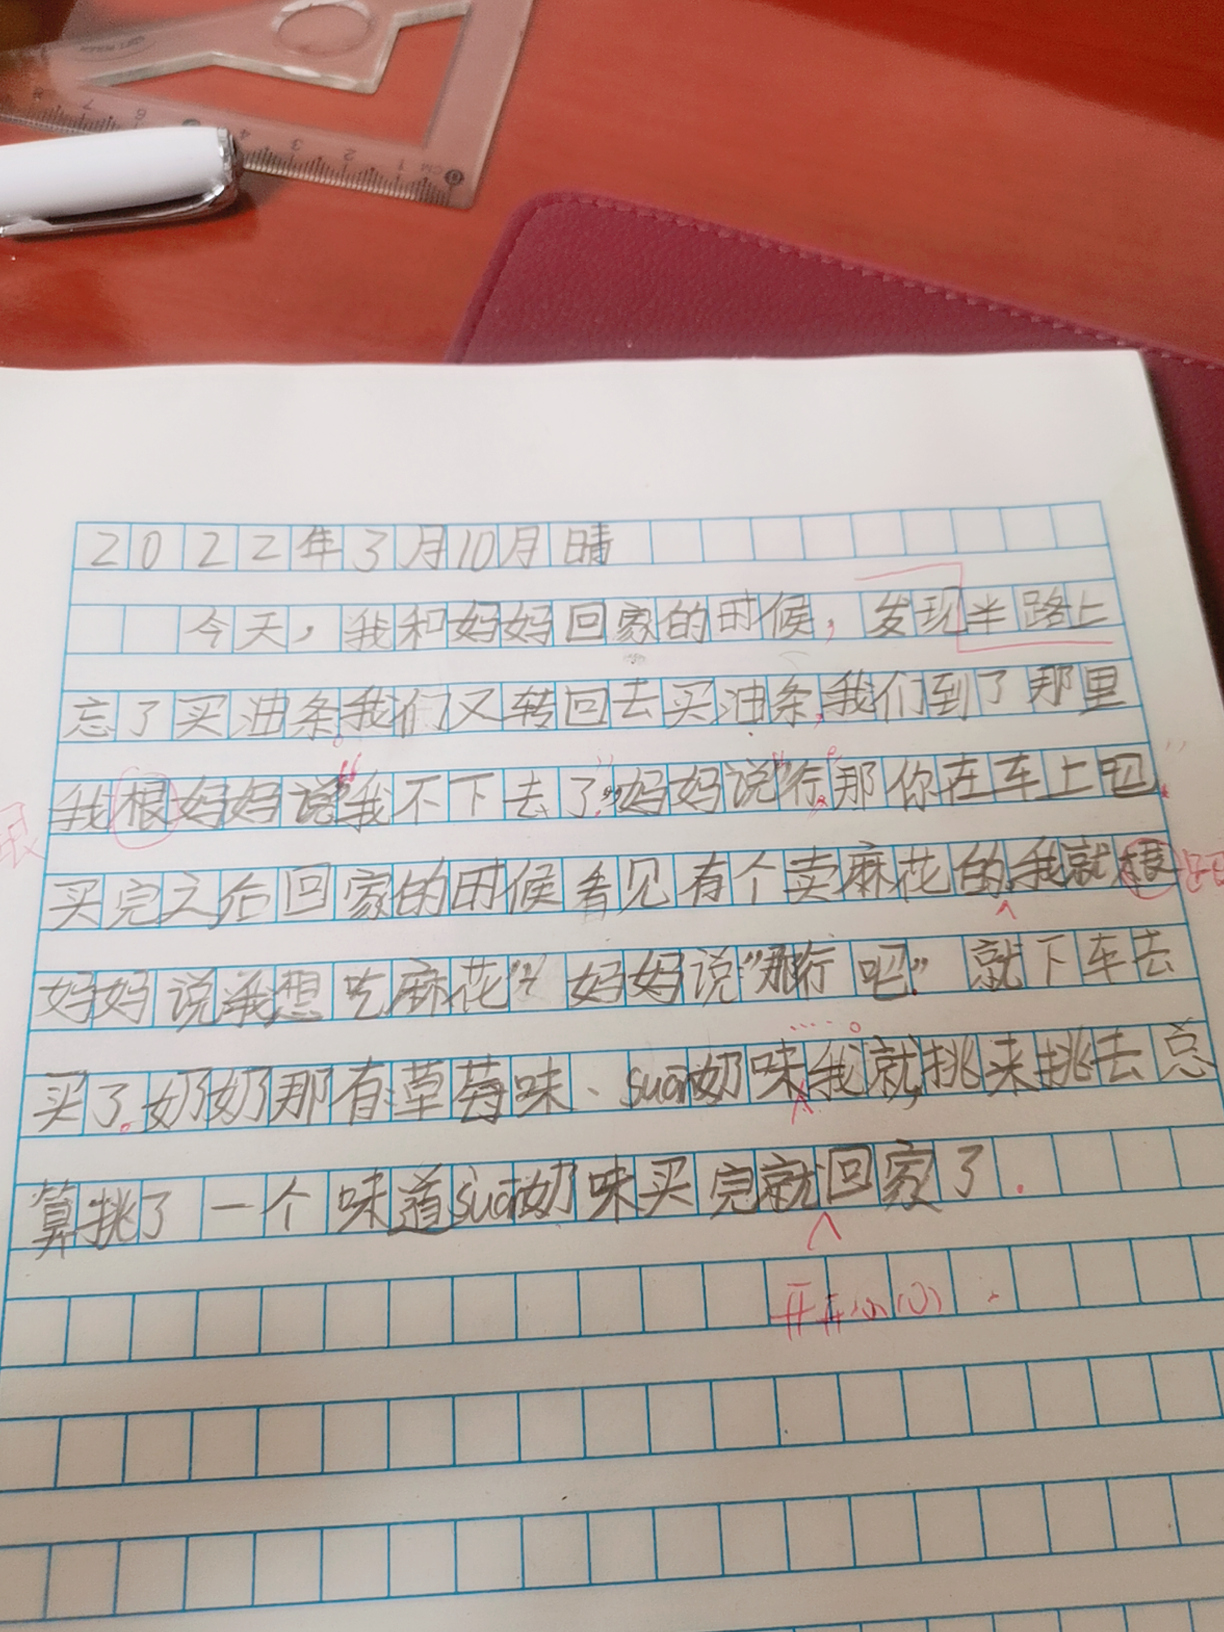 2022年3月10月 晴
今天，我和妈妈回家的时候，发现半路上
忘了买油条。我们又转回去买油条，我们到了那里
我根妈妈说“我不下去了。”妈妈说“行，那你在车上吧。”
跟
买完之后回家的时候看见有个卖麻花的，我就根
跟
妈妈说我想吃麻花“ 妈妈说“那行吧。”就下车去
买了。奶奶那有草莓味、suan奶味……。我就挑来挑去总
算挑了一个味道suan奶味买完就回家了。
开开心心